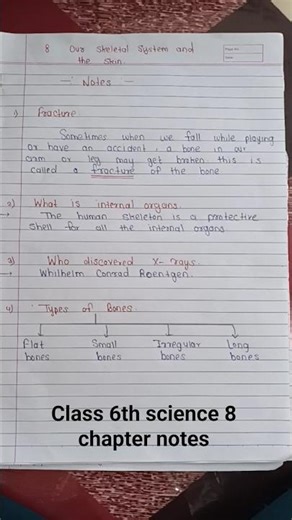 8 Our Skeletal System and
the Skin.
Notes
1) Fracture
Sometimes when we fall while playing
or have an accident, a bone in our
arm or leg may get broken this is
called a fracture of the bone
2) What is internal organs.
→ The human skeleton is a protective
shell for all the internal organs
3) Who discovered X-rays.
→ Whilhelm Conrad Roentgen.
4) Types of Bones
Flat Small Irregular Long
bones bones bones bones
Class 6th science 8
chapter notes